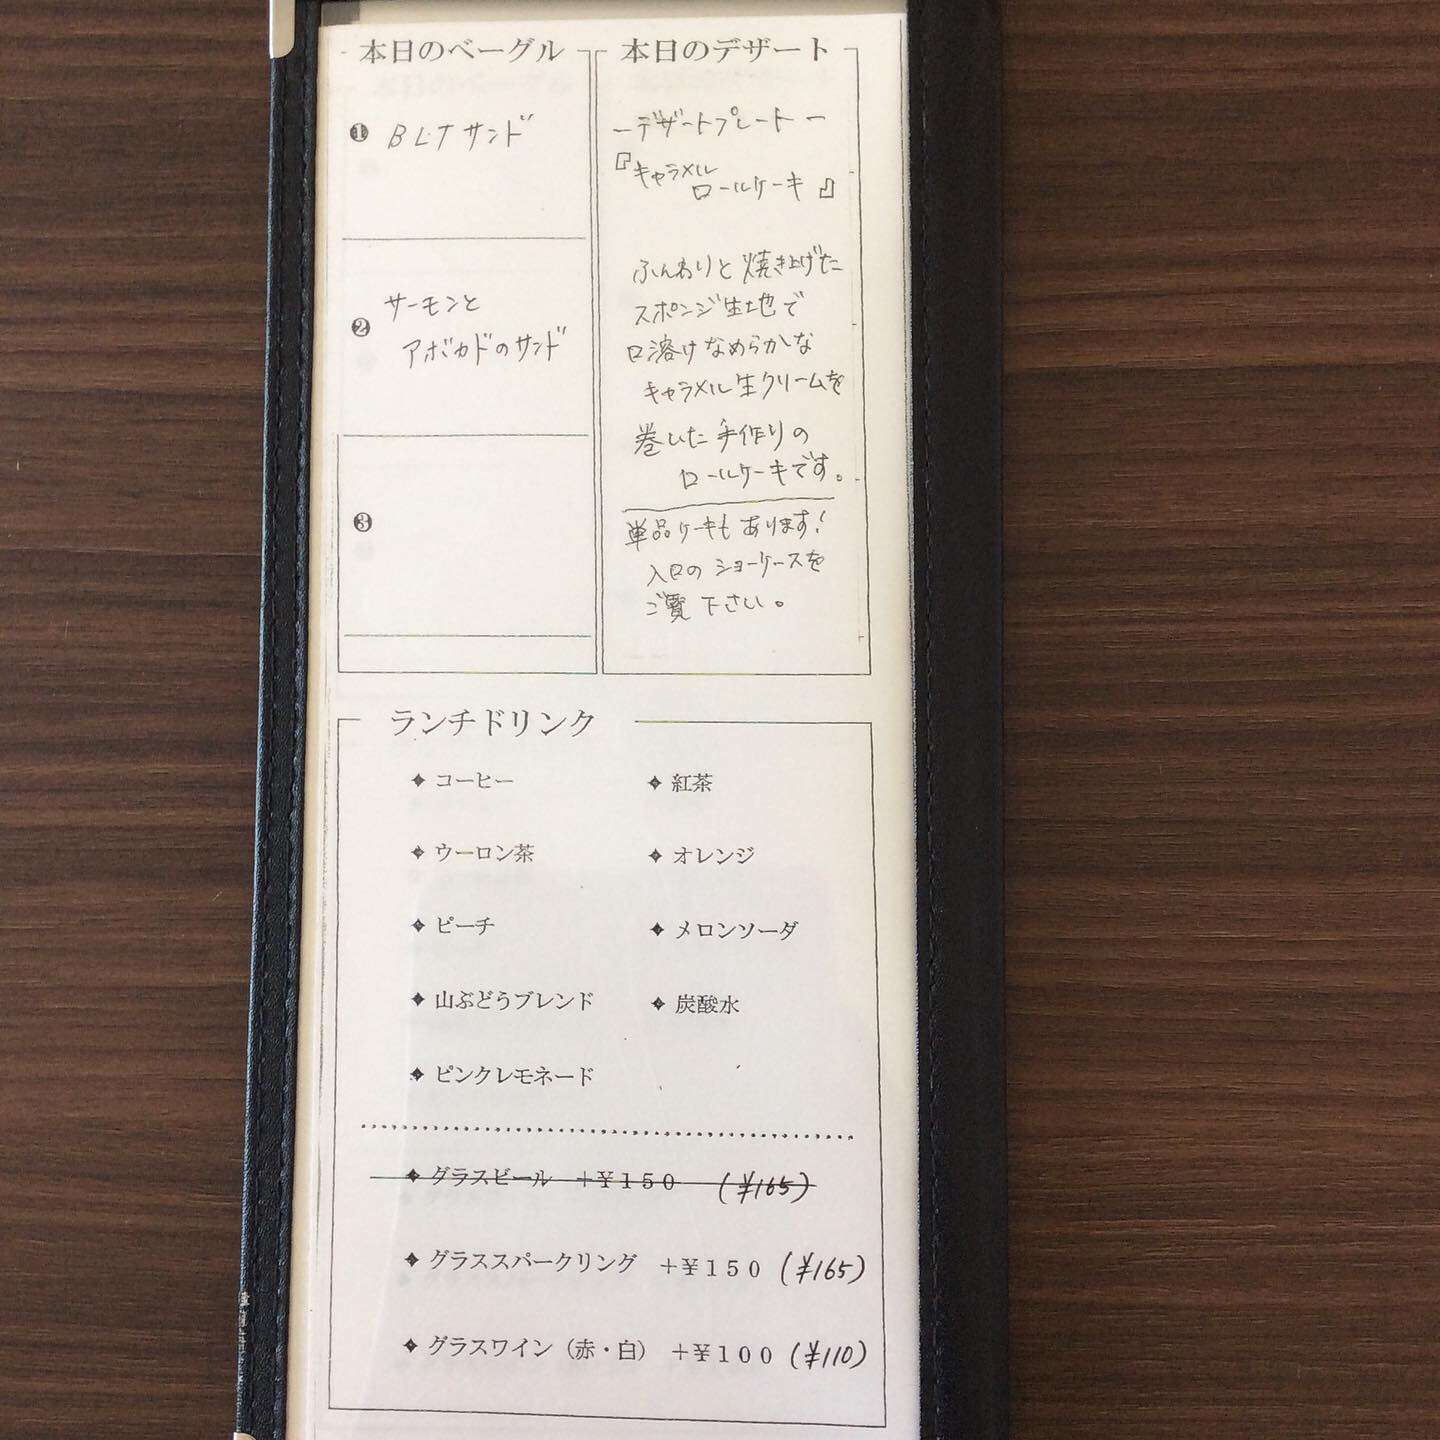 本日のベーグル
❶ BLTサンド
❷ サーモンと
アボカドのサンド
❸
本日のデザート
ーデザートプレートー
『キャラメル
ロールケーキ』
ふんわりと焼き上げた
スポンジ生地で
口溶けなめらかな
キャラメル生クリームを
巻いた手作りの
ロールケーキです。
単品ケーキもあります!
入口のショーケースを
ご覧下さい。
ランチドリンク
◆コーヒー ◆紅茶
◆ウーロン茶 ◆オレンジ
◆ピーチ ◆メロンソーダ
◆山ぶどうブレンド ◆炭酸水
◆ピンクレモネード
◆グラスビール +¥150 (¥165)
◆グラススパークリング +¥150 (¥165)
◆グラスワイン(赤・白) +¥100 (¥110)